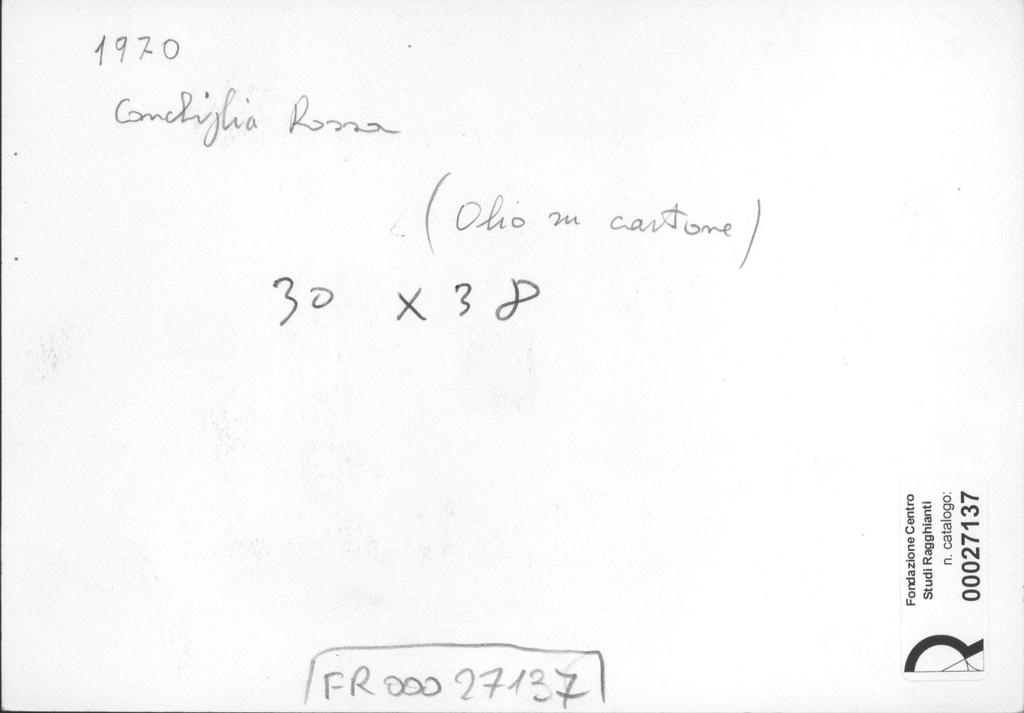 1970
Conchiglia Rossa
(Olio su cartone)
30 x 38
Fondazione Centro
Studi Ragghianti
n. catalogo:
00027137
FR000 27137